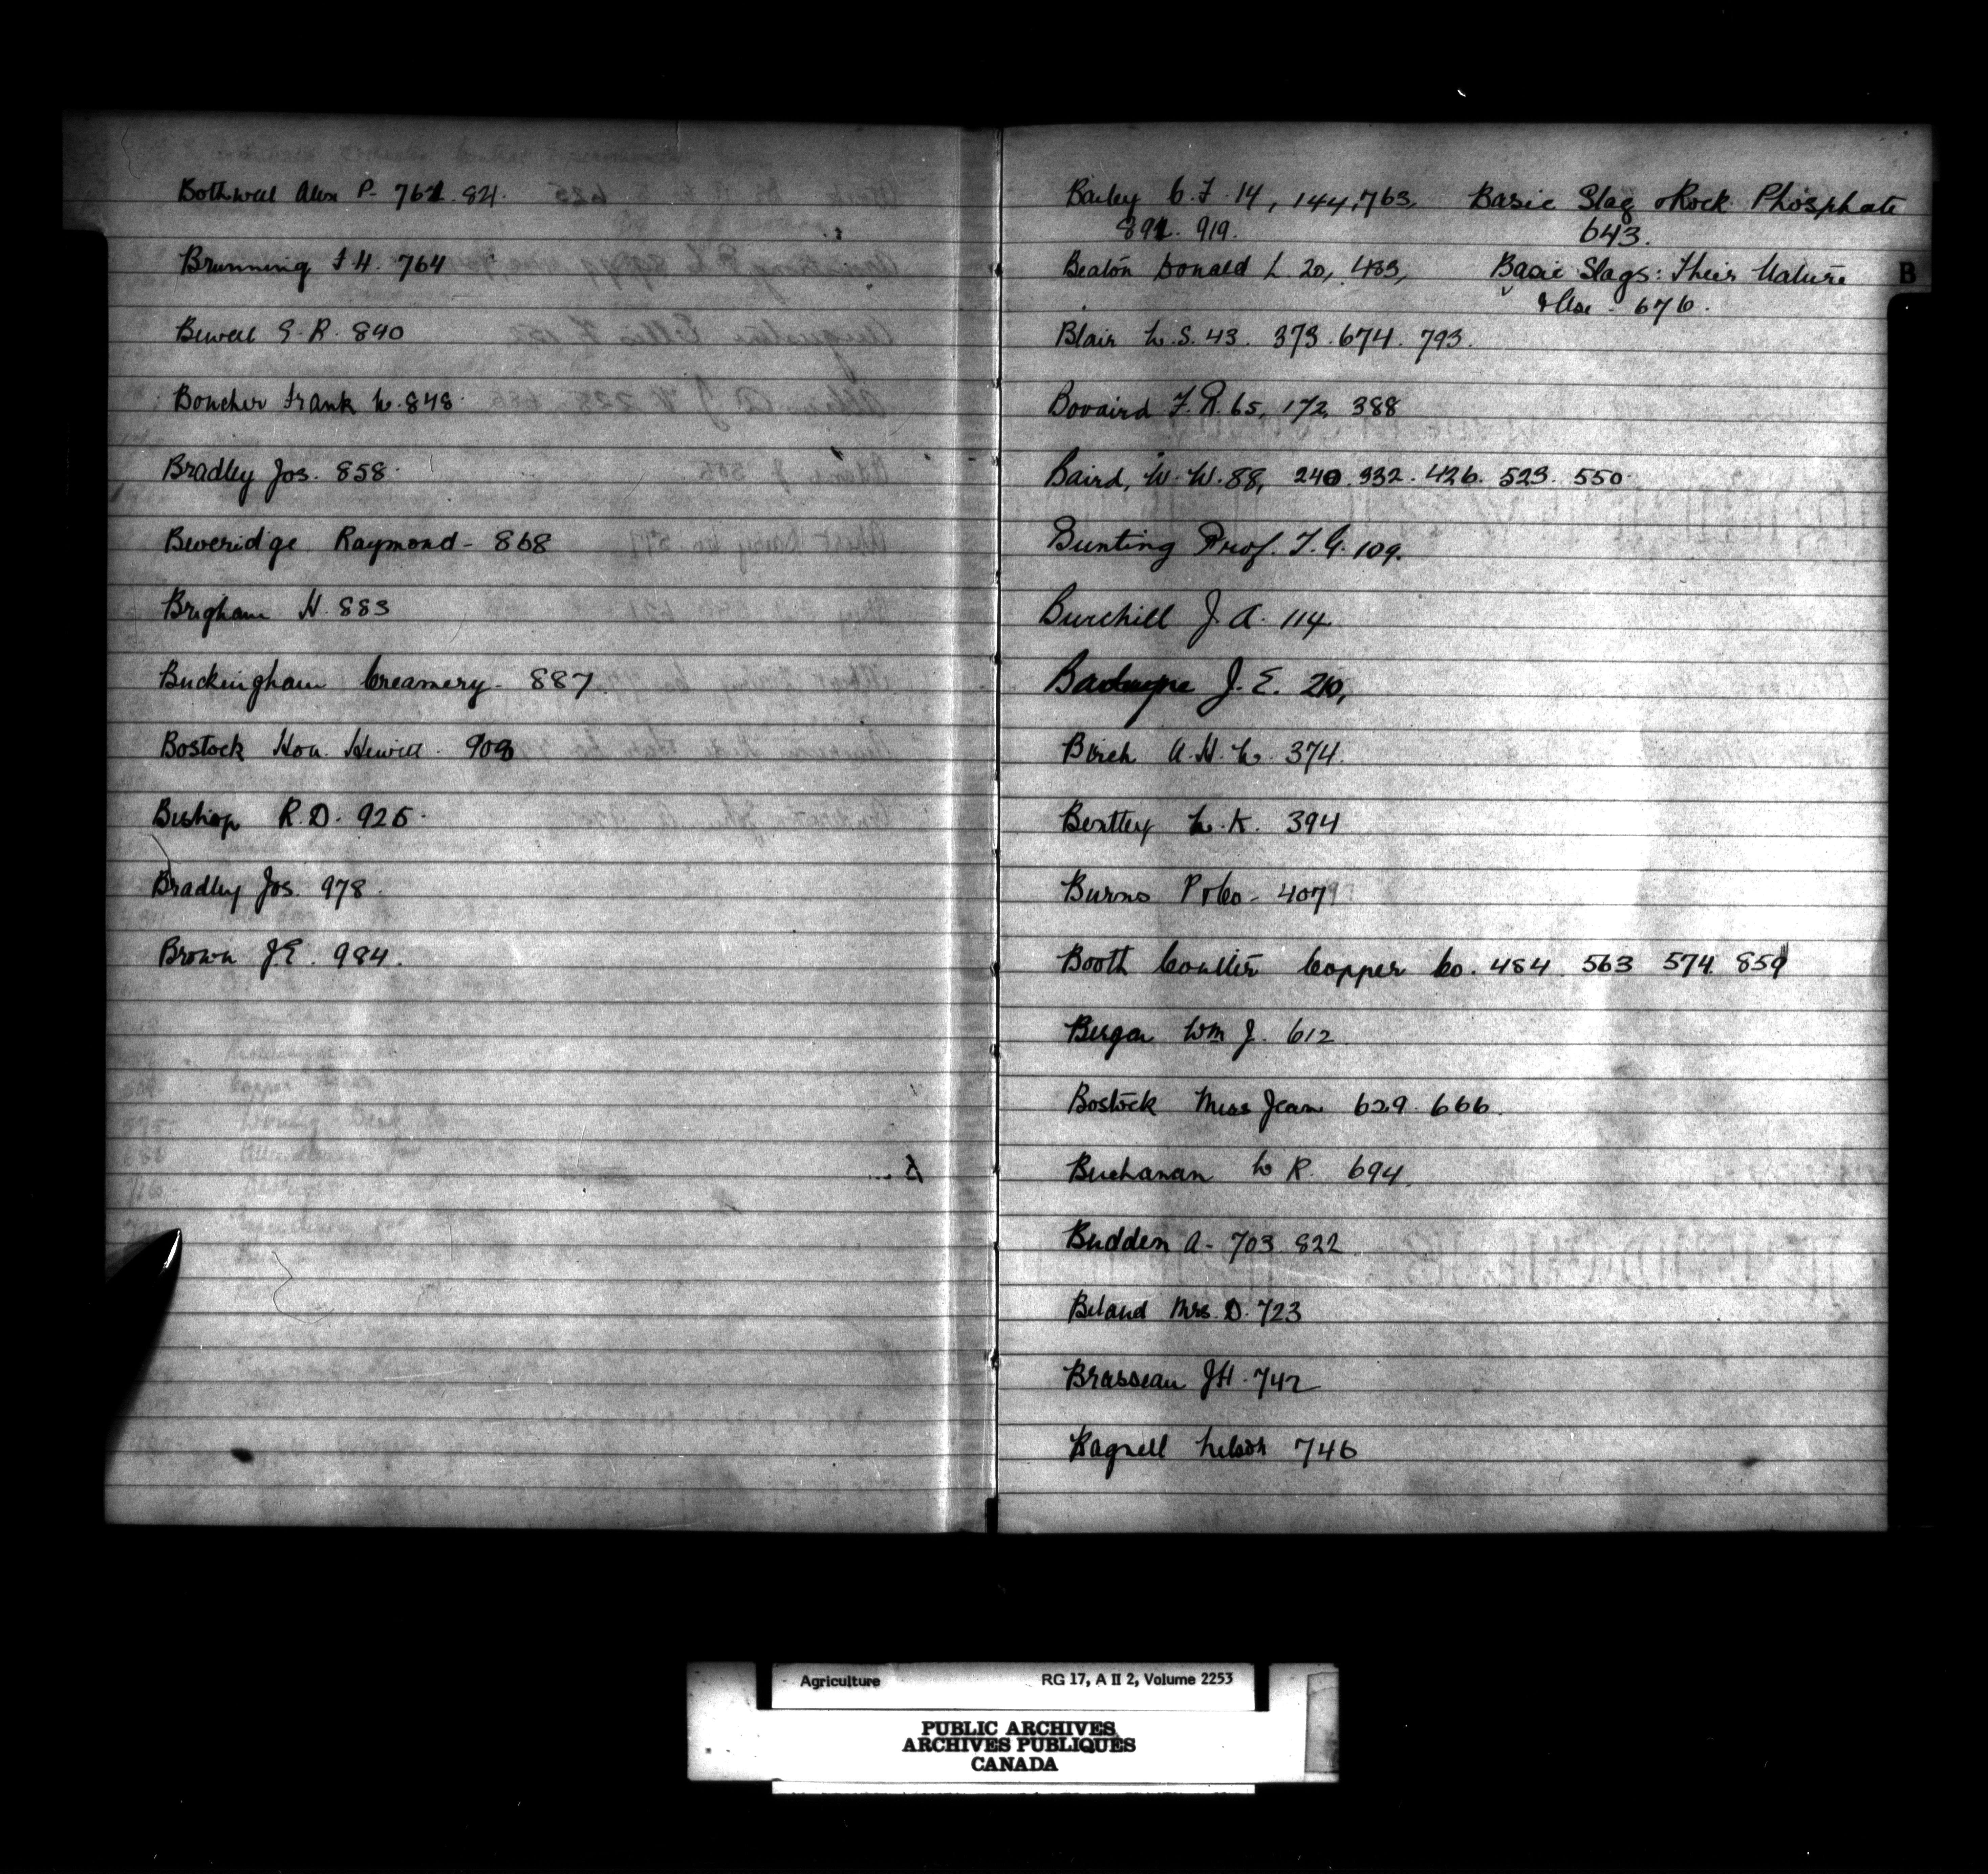 Bothwell Alex P- 761. 821.
Brunning F.H. 764
Bewell E. R. 890
Boucher Frank W. 848
Bradley Jos. 858
Beveridge Raymond - 868
Brigham H. 883
Buckingham Creamery - 887
Bostock Hon. Hewitt. 908
Bishop R.D. 925.
Bradley Jos. 978
Brown J.E. 984.
Bailey C. F. 14, 144, 763,
891. 919.
Beaton Donald L 20, 483,
Blair W. S. 43. 373. 674. 793.
Bovaird F. R. 65, 172, 388
Baird, W. W. 88, 240. 332. 426. 523. 550.
Bunting Prof. T. G. 109.
Burchill J. A. 114
J. E. 210,
Birch A. H. W. 374.
Bentley W. K. 394
Burns P & Co - 407
Booth Coulter Copper Co. 484 563 574 859
Wm J. 612
Bostock Miss Jean 629. 666.
Buchanan W R. 694.
Budden A - 703 822
Beland Mrs. D. 723
Brasseau J H. 742
Bagnell Nelson 746
Basic Slag & Rock Phosphate
643.
Basic Slags: Their Nature
& Use - 676.
B
Agriculture RG 17, A II 2, Volume 2253
PUBLIC ARCHIVES
ARCHIVES PUBLIQUES
CANADA